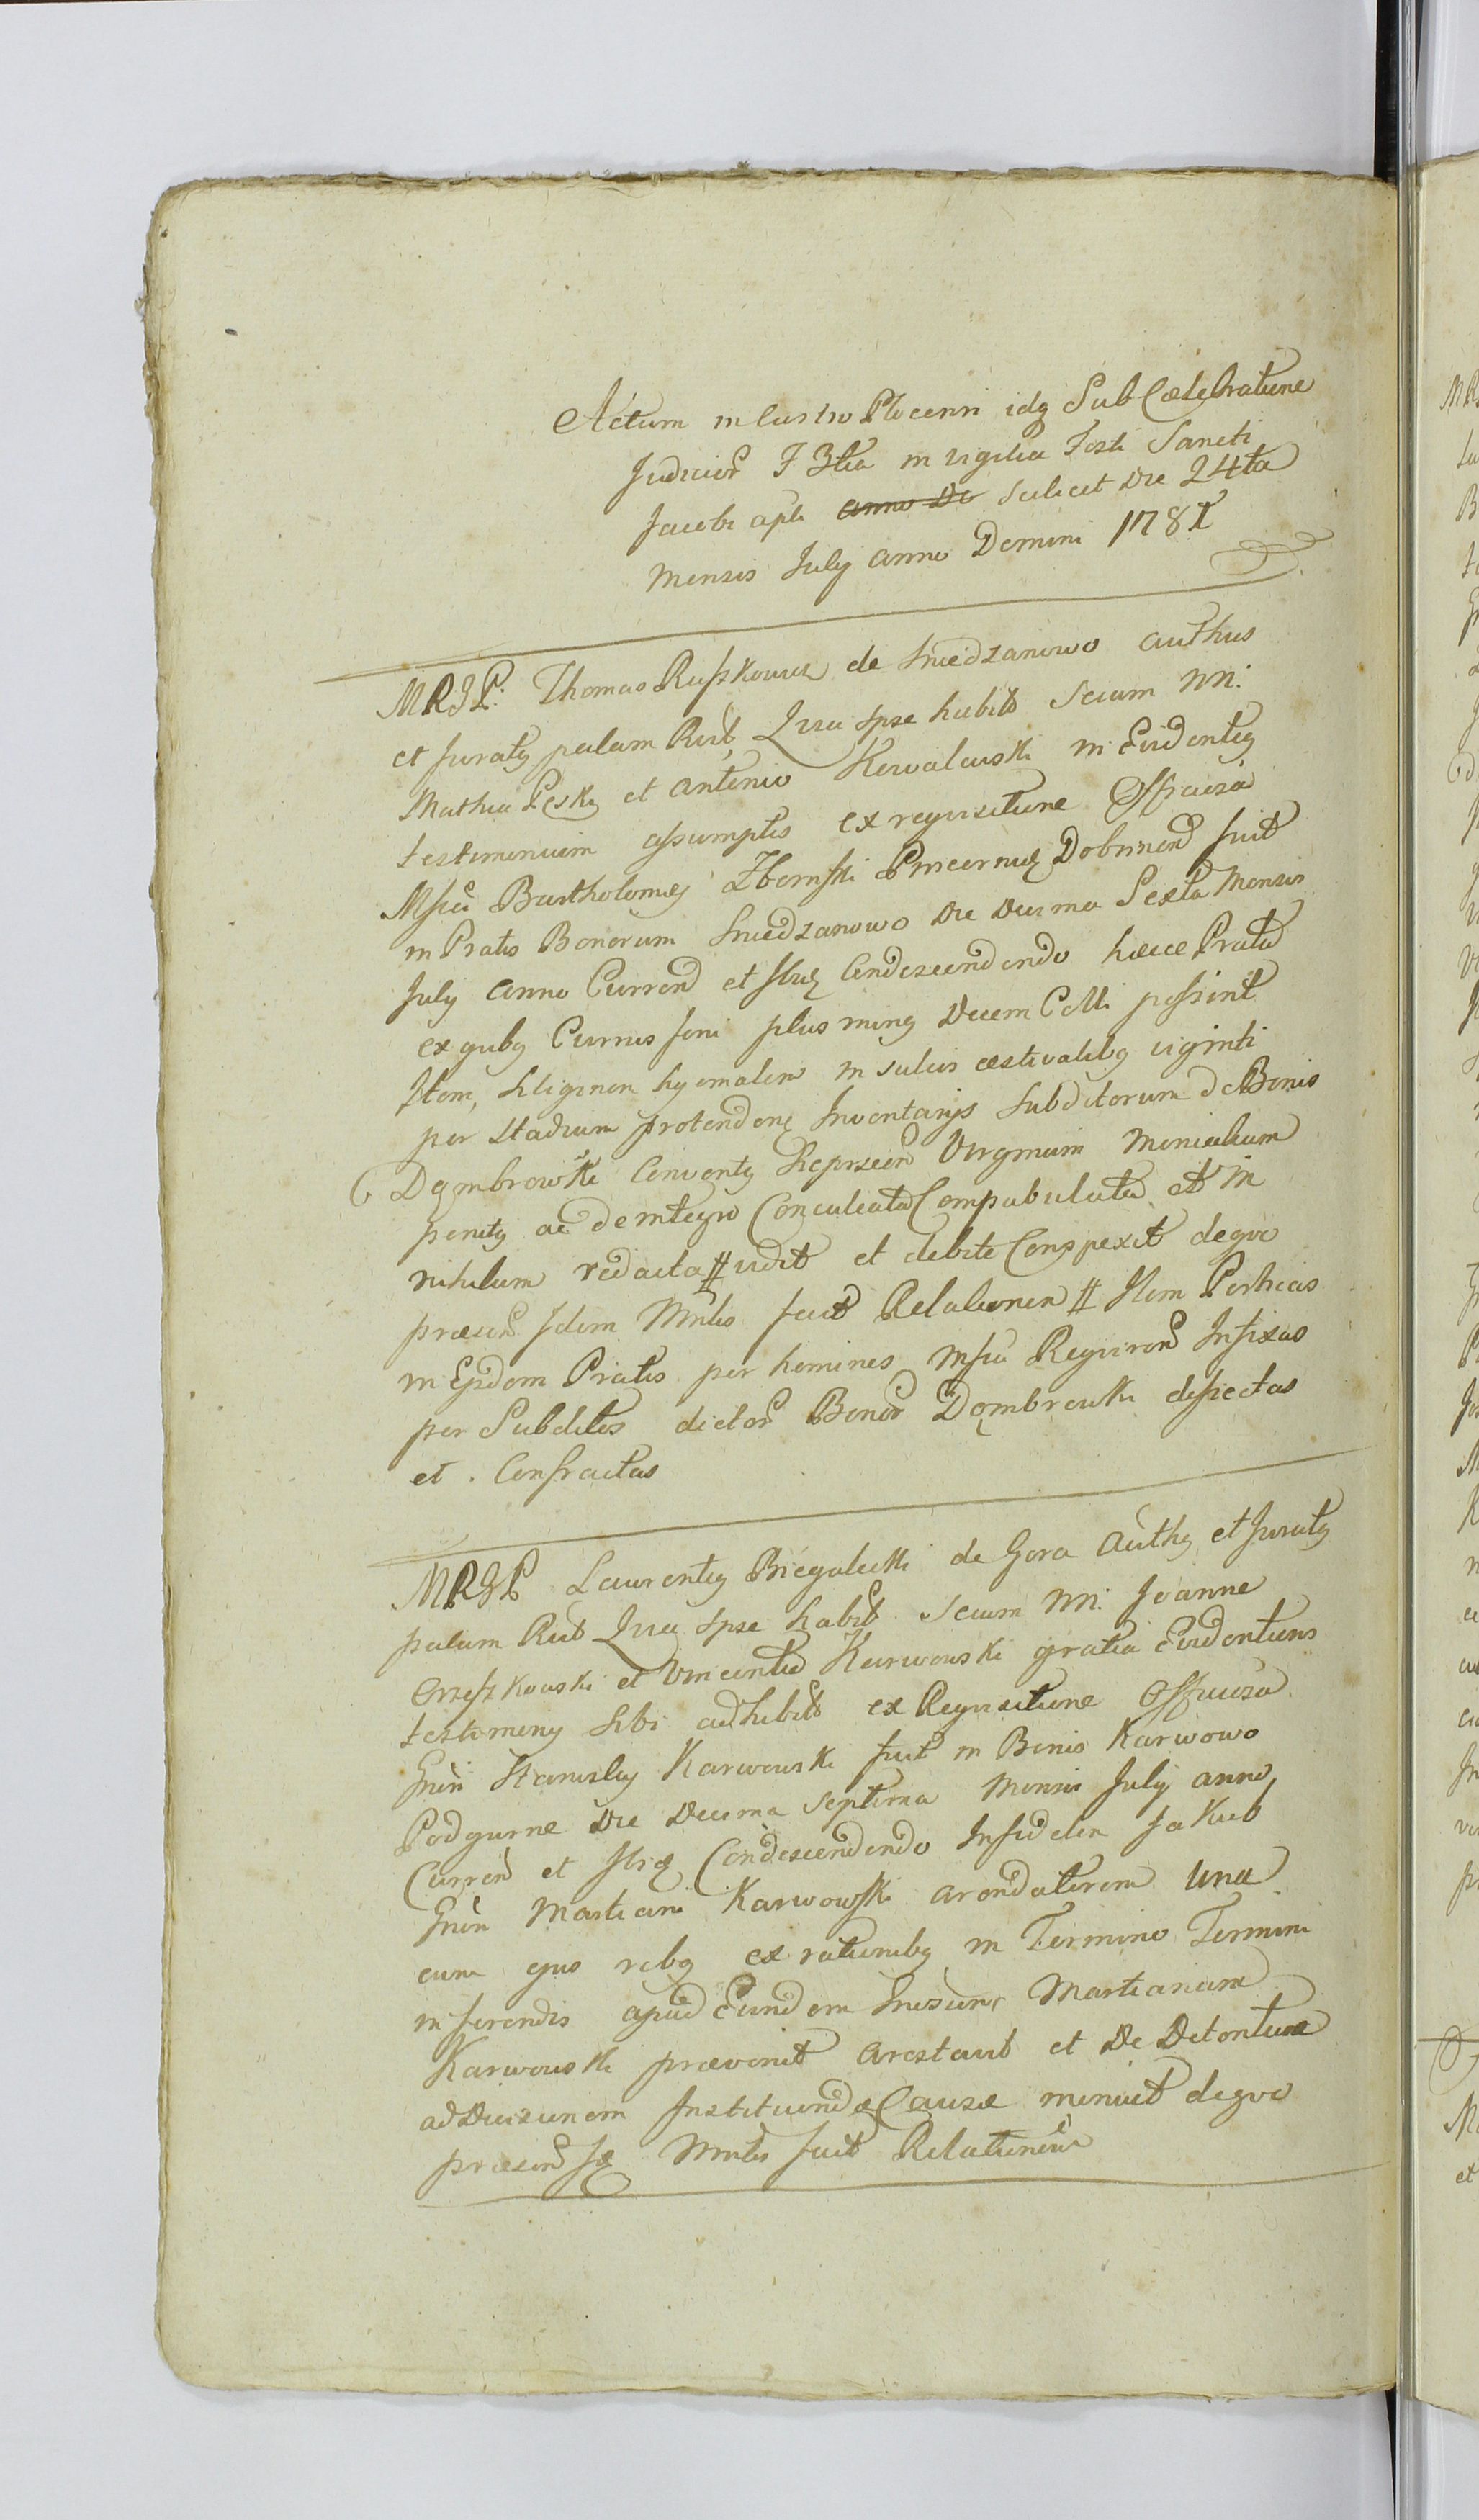 Actum in Castro Plocensi idq Sub Caelebratione
Judicior F 3tia in vigilia Festi Sancti
Jacobi apli anno Do scilicet Die 24ta
Mensis July anno Domini 1781
MRGP: Thomas Ruszkowicz de Sniedzanowo authus
et Juratq palam Rect Quia Ipse habito Secum NN:
Mathia Peskq et Antonio Kowalewski in Evidentiq
testimonium assumptis ex requisitione Officiosa
Msci Bartholomęj Zboinski Pincernę Dobrinen fuit
in Pratis Bonorum Sniedzanowo Die Decima Sexta Mensis
July Anno Curren et Ibidę Condescendendo haece Prata
ex qubq Currus foeni plus minq Decem Colli possint
Item, Siliginem hyemalem in sulcis aestivalibq viginti
per Stadium protendenę Inventarijs Subditorum de Bonis
Dąmbrowski Conventq Sheprscen Virginum Monialium
penitq ac de integro Conculcata Compabulata et in
nihilum redacta # vidit et debite Conspexit deqve
praesen Idem Mnlis fecit Relationem # Item Perticas
in Ejsdem Pratis per homines Msci Requiren Infixas
per Subditos dictor Bonor Dąmbrowski dejectas
et Confractas
MRGP Laurentiq Biegalecki de Gora Authq et Juratq
palam Rect Quia Ipse habit Secum NN: Joanne
Orzeszkowski et Vincentio Karwowski gratia Evidentioris
testimony Sibi adhibit ex Requisitione Officiosa
Gnsi Stanislaj Karwowski fuit in Bonis Karwowo
Podgurne Die Decima Septima Mensis July anno
Curren et Ibidę Condescendendo Infidelem Jakub
Gnsi Martiani Karwowski arendatorem una
cum ejus rebq ex rationibq in Termino Termini
inferendis apud Eundem Gnesum Martianum
Karwowski praevenit arestavit et De Detentione
ad Decisionem Instituendae Causae monuit deqve
praesen Idę Mnlis fecit Relationem